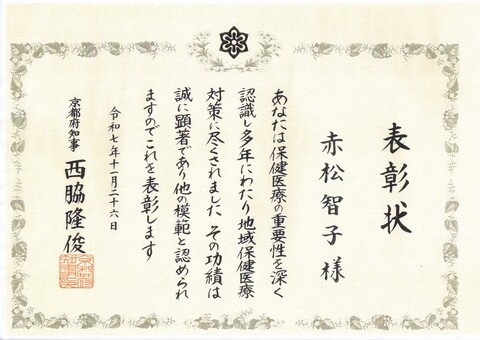 表彰状
赤松智子様
あなたは保健医療の重要性を深く
認識し多年にわたり地域保健医療
対策に尽くされました その功績は
誠に顕著であり他の模範と認められ
ますのでこれを表彰します
令和七年十一月二十六日
京都府知事 西脇隆俊
京都府知事印